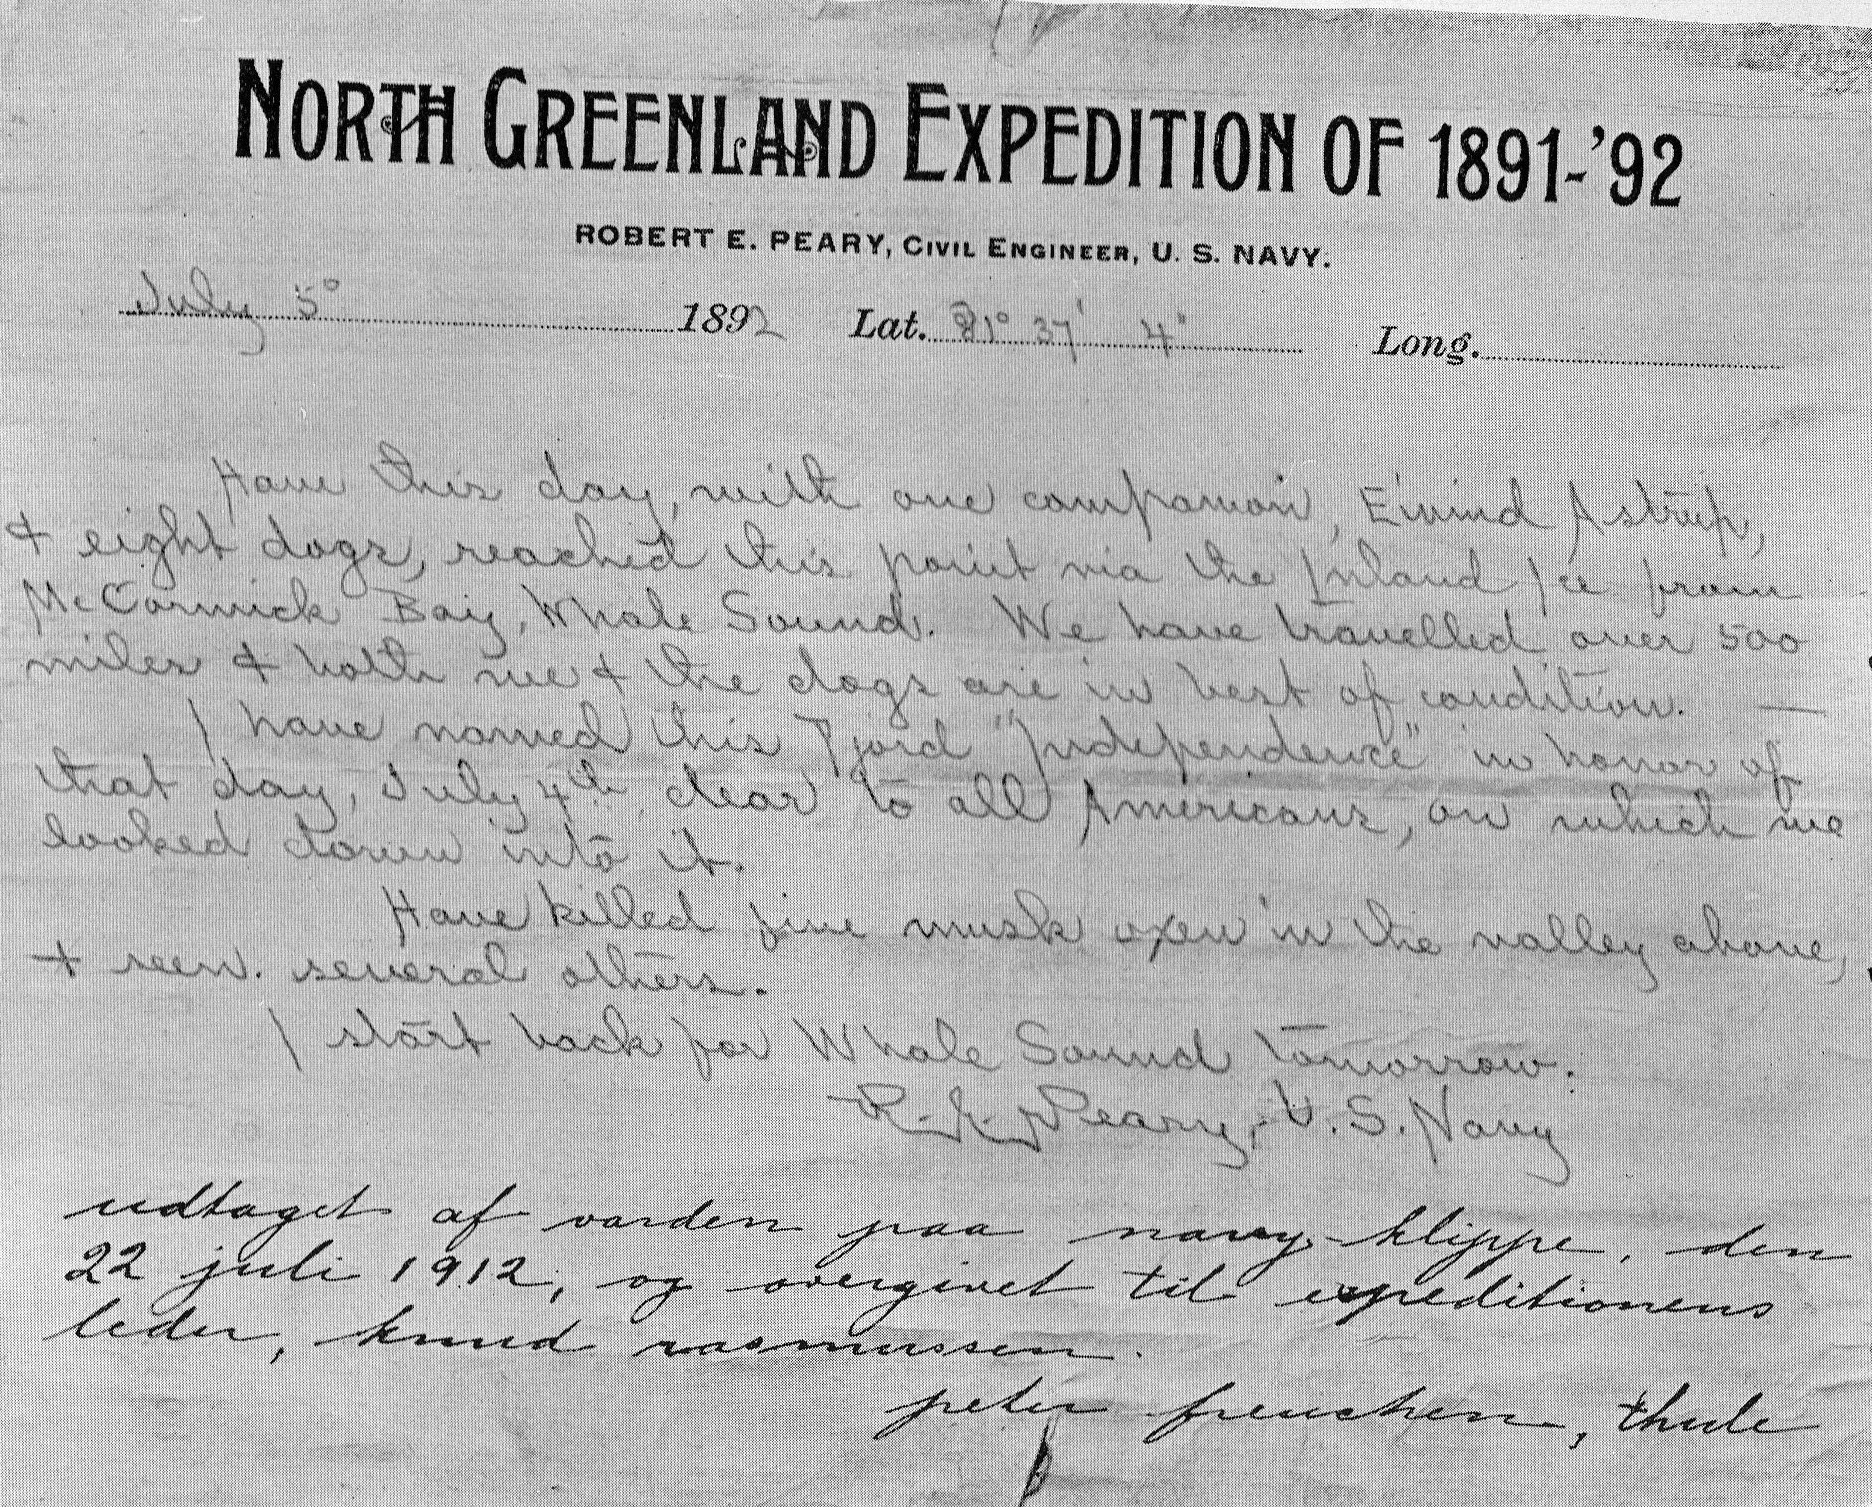 NORTH GREENLAND EXPEDITION OF 1891-'92
ROBERT E. PEARY, CIVIL ENGINEER, U. S. NAVY.
July 5° 1892 Lat. 81° 37' 4" Long.
Have this day, with one companion, Eivind Astrup,
& eight dogs, reached this point via the Inland Ice from
McCormick Bay, Whale Sound. We have travelled over 500
miles & both we & the dogs are in best of condition. —
I have named this Fjord "Independence" in honor of
that day, July 4th dear to all Americans, on which we
looked down into it.
Have killed five musk oxen in the valley above,
& seen. several others.
I start back for Whale Sound tomorrow.
R. E. Peary, U. S. Navy
udtaget af varden paa navy-klippe, den
22 juli 1912, og overgivet til expeditionens
leder, knud rasmussen.
peter freuchen, thule